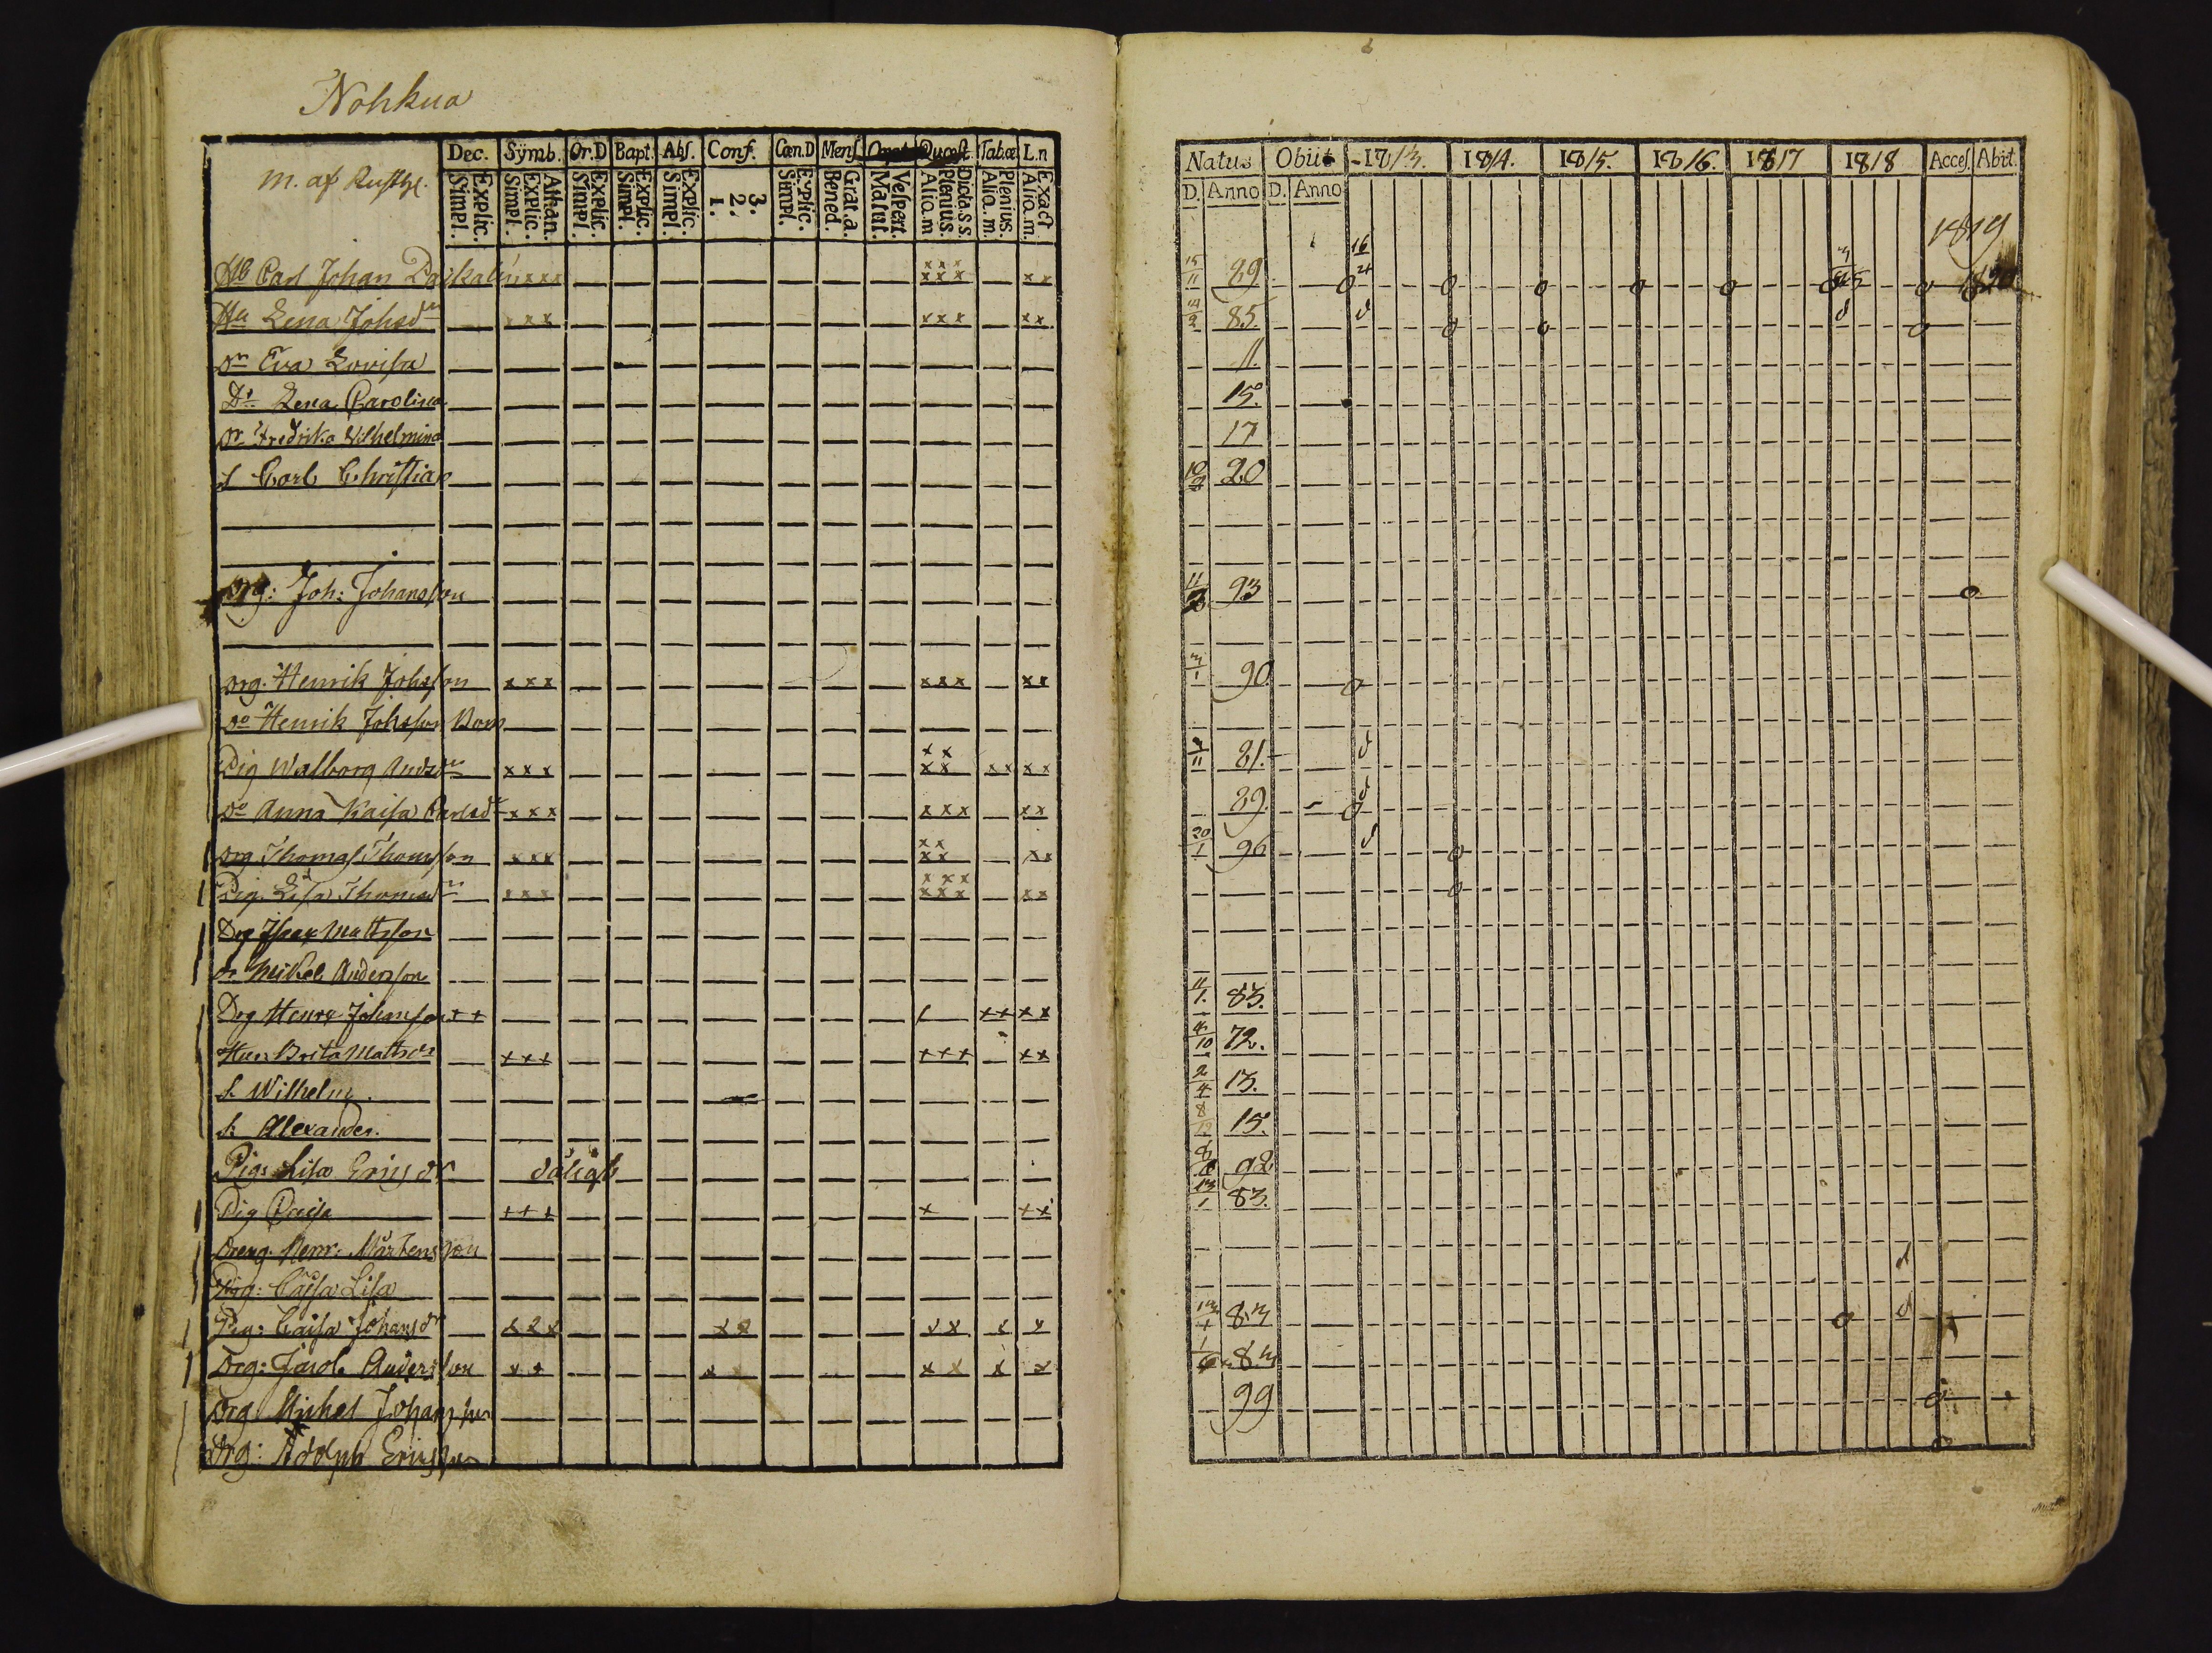 Nohkua
Dec. Sÿmb. Or.D Bapt. Abſ. Conf. Cœn.D Menſ Quæſt Tab.œ L.n
m. af
Explic. Simpl. Athan. Explic. Simpl. Explic. Simpl. Explic. Simpl. Explic. Simpl. 3. 2. 1. Explic. Simpl. Grat.a. Bened. Veſpert. Matut. Dicta.S.S. Plenius. Aliq.m Plenius. Aliq.m. Exact Aliq.m.
Carl Johan xxx xxx xxx xx
Lena Johsdr xxx xxx xx
Dr Eva Lovisa
Dr Lena Carolina
Dr Fredrika Wilhelmina
S Carl Christian
Drg: Joh: Johansson
Drg. Henrik Johsson xxx xxx xx
Do Henrik Johsson
Pig Walborg Andsdr xxx xx xx xx xx
Do Anna Kaisa Carlsd xxx xxx xx
Drg Thomas Thomsson xxx xx xx xx
Pig. Lisa Thomsdr xxx xxx xxx xx
Drg Isaac Mattsson
Do Mikel Andersson
Drg Henr Johansson ++ ++ xx
Brita Mattsdr +++ +++ ++
S. Wilhelm.
S. Alexander.
Piga Lisa Ericsdr dåligt
Pig Caisa +++ + ++
Dreng. Henr. Mårtensson
Pig: Cajsa Lisa
Pig: Caisa Johansdr xxx xx xx x x
Drg: Jacob Andersson xx xx xx x x
Drg Michel Johansson
Drg: Adolph Ericsson
Natus Obiit 1813. 1814. 1815. 1816. 1817 1818 Acceſ. Abit.
D. Anno D. Anno
1819
15/11 89 16/4 1820
85.
11.
15.
17
10/9 20
93
90
81.
89.
20/1 96
11/1. 83.
72.
2/4 13.
8/12 15.
92
13/1 83.
83
83
99